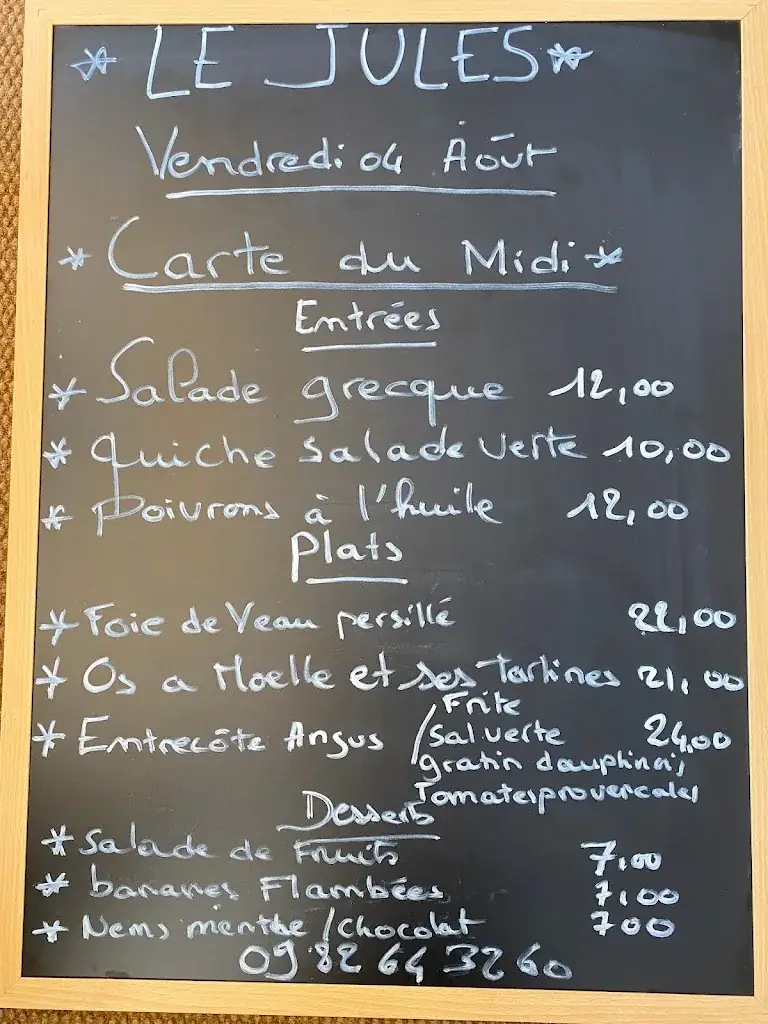 * LE JULES *
Vendredi 04 Août
* Carte du Midi *
Entrées
* Salade grecque 12,00
* quiche salade verte 10,00
* poivrons à l'huile 12,00
Plats
* Foie de Veau persillé 22,00
* Os a Moelle et ses Tartines 21,00
* Entrecôte Angus / Frite 24,00
Sal verte
gratin dauphinois
Tomates provencales
Desserts
* Salade de Fruits 7,00
* bananes Flambées 7,00
* Nems menthe / chocolat 700
09 82 64 32 60